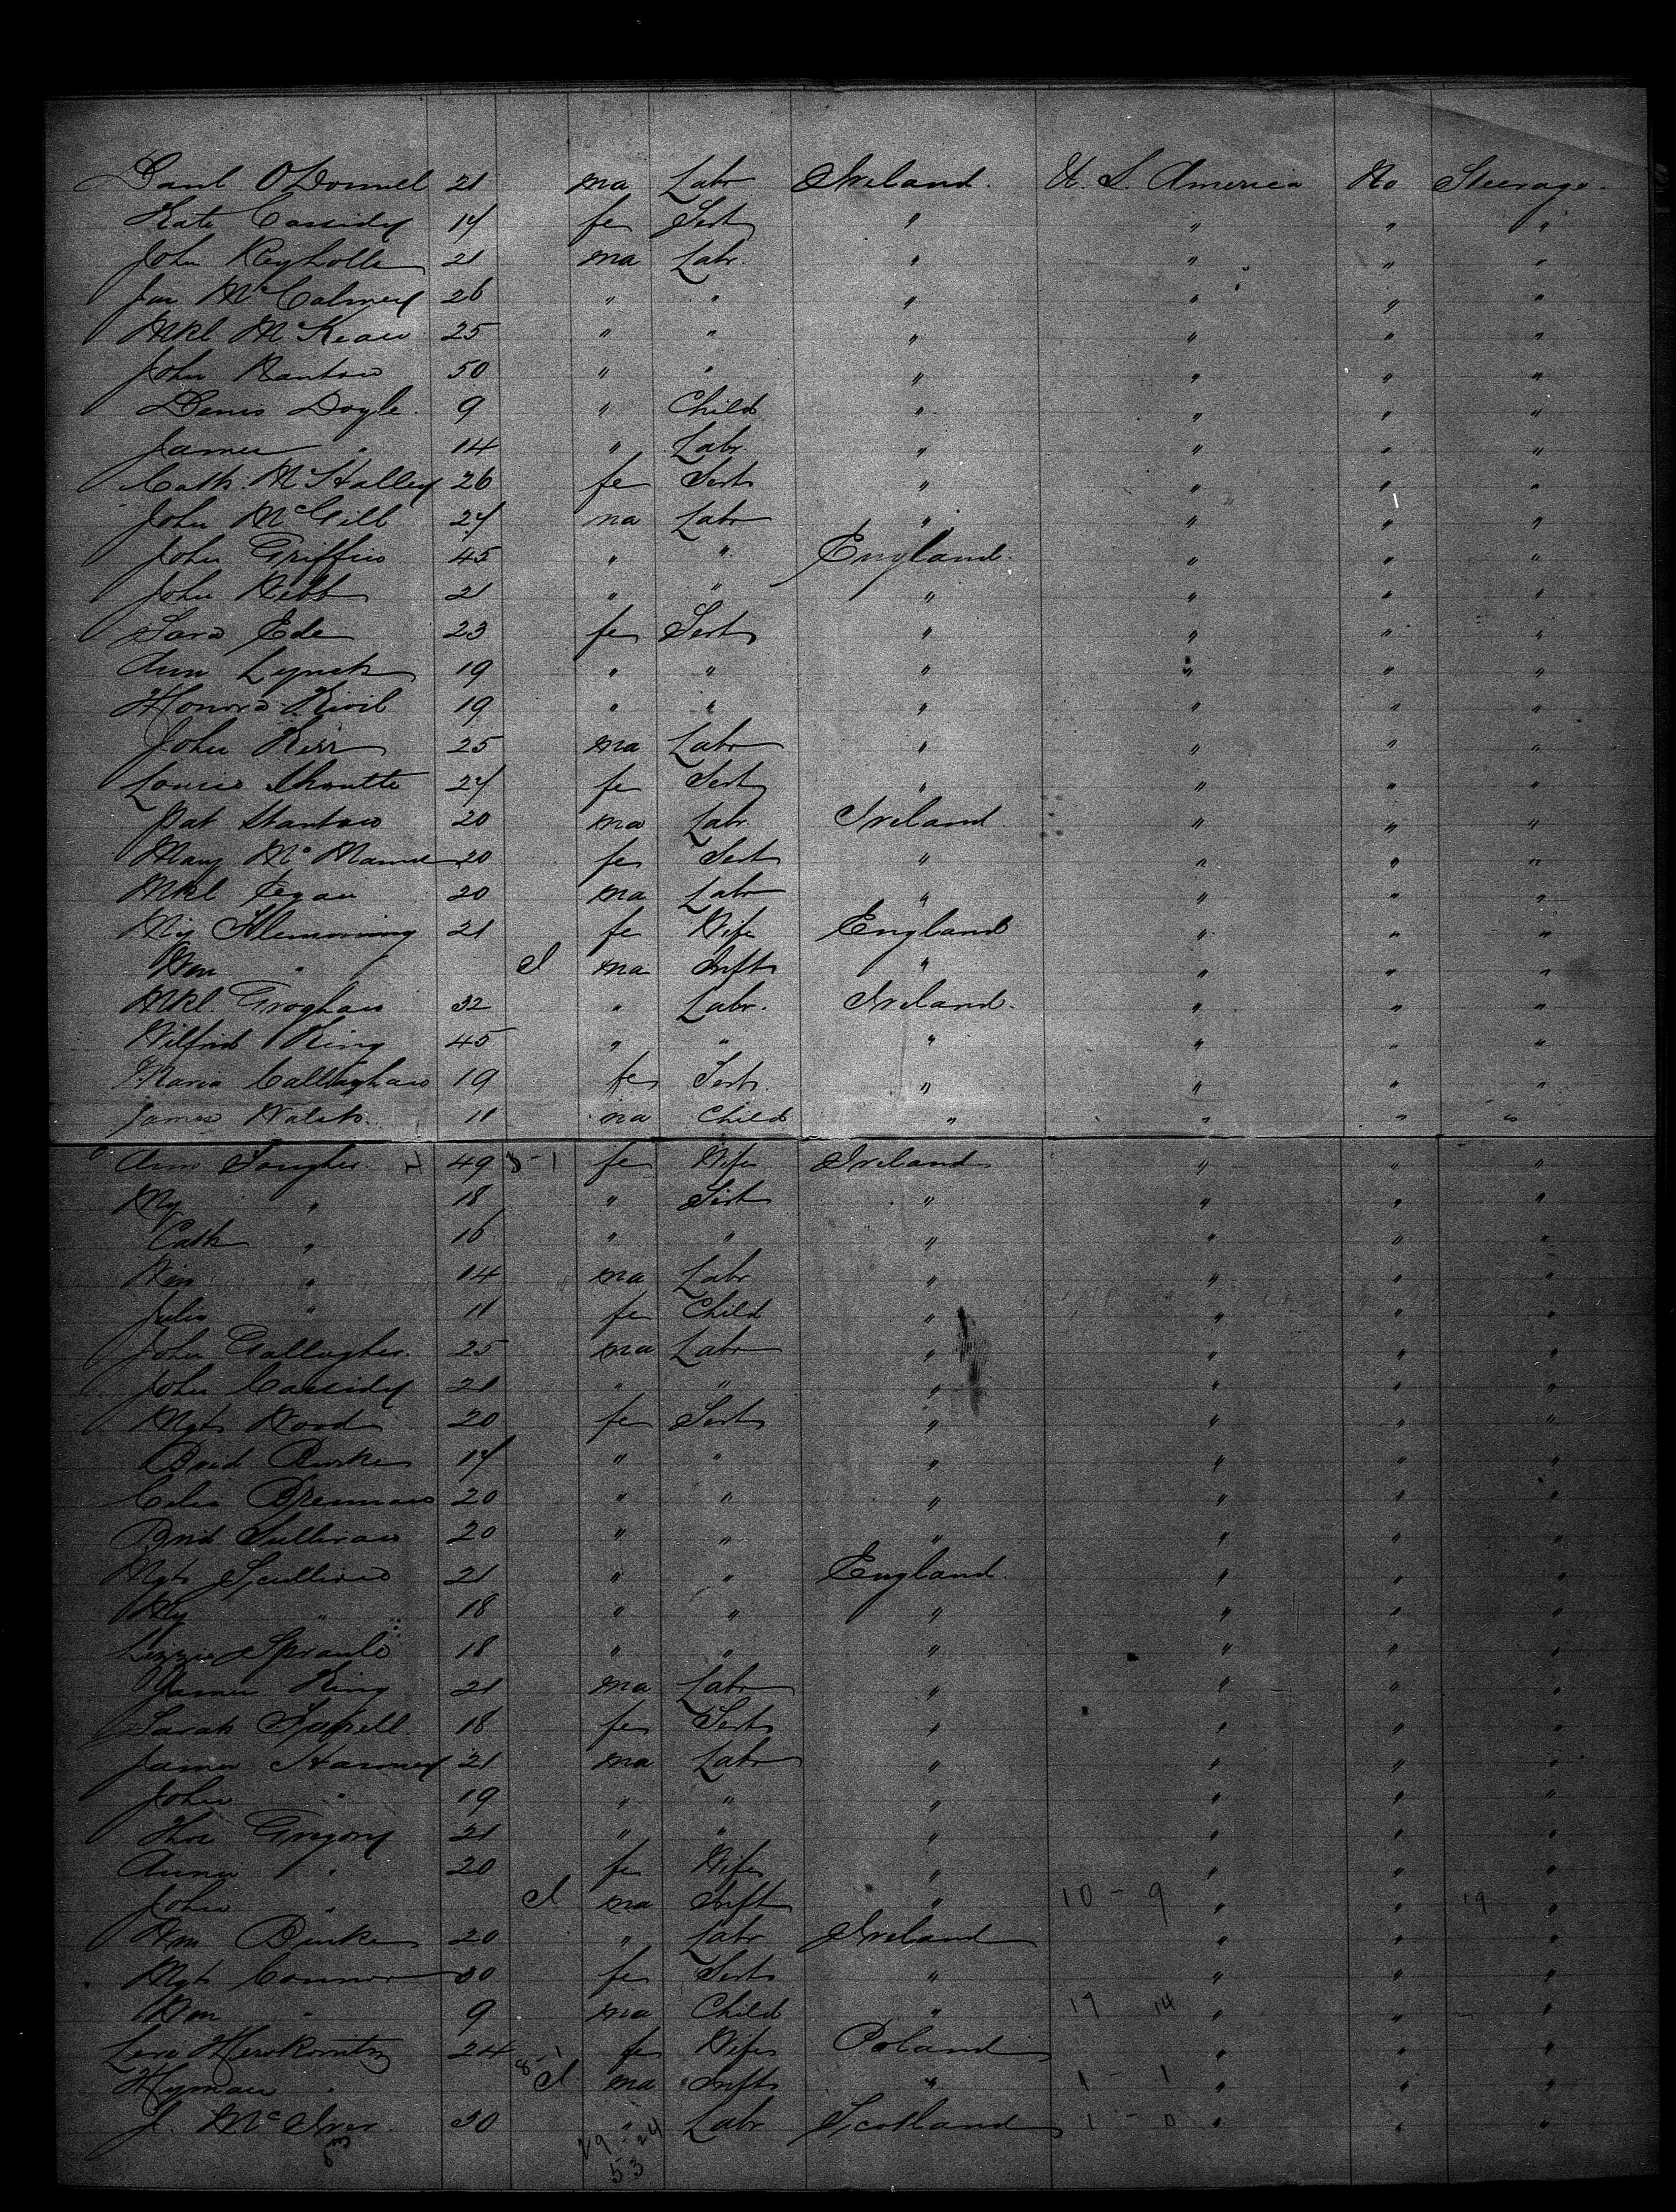 Danl O'Donnell 21 ma Labr Ireland. U. S. America No Steerage.
Kate Cassidy 17 fe Sert " " " "
John 21 ma Labr. " " " "
Jas McCalmey 26 " " " " " "
Mkl McKeaw 25 " " " " " "
John 50 " " " " " "
Denis Doyle. 9 " Child " " " "
James " 14 " Labr. " " " "
Cath. McHalley 26 fe Sert " " " "
John McGill 27 ma Labr " " " "
John Griffin 45 " " England. " " "
John 21 " " " " " "
Sara Ede 23 fe Sert " " " "
Ann Lynch 19 " " " " " "
Honora 19 " " " " " "
John Kerr 25 ma Labr " " " "
Louisa 27 fe Sert " " " "
Pat Stanton 20 ma Labr Ireland. " " "
Mary Mc 20 fe Sert " " " "
Mkl Egan 20 ma Labr " " " "
My Flemming 21 fe Wife England " " "
Wm " I ma Inft " " " "
Mkl. Groghan 32 " Labr. Ireland. " " "
Wilfrid King 45 " " " " " "
Maria Callaghan 19 fe Sert. " " " "
James Walsh. 11 ma Child " " " "
Ann 49 3-1 fe Wife Ireland " " "
My " 18 " Sert " " " "
Cath " 16 " " " " " "
Wm " 14 ma Labr " " " "
Julia " 11 fe Child " " " "
John Gallagher. 25 ma Labr " " " "
John Cassidy 21 " " " " " "
Mgt Wood 20 fe Sert " " " "
Brid Burke 17 " " " " " "
Celia Brennan 20 " " " " " "
Brid Sullivan 20 " " " " " "
Mgt Scullion 21 " " England. " " "
My " 18 " " " " " "
Lizzie Spraule 18 " " " " " "
James King 21 ma Labr " " " "
Sarah 18 fe Sert " " " "
James Hanney 21 ma Labr " " " "
John " 19 " " " " " "
Thos Gregory 21 " " " " " "
Annie " 20 fe Wife " " " "
John " I ma Inft " 10 - 9 " " 19 "
Wm Burke 20 " Labr Ireland " " "
Mgt Connor 30 fe Sert " " " "
Wm " 9 ma Child " 19 14 " " "
Lena Herskowitz 24 8-1 fe Wife Poland " " "
Hyman " I ma Inft " 1 - 1 " " "
J. McIver 30 " Labr Scotland 1 - 0 " " "
53 29 - 24
53